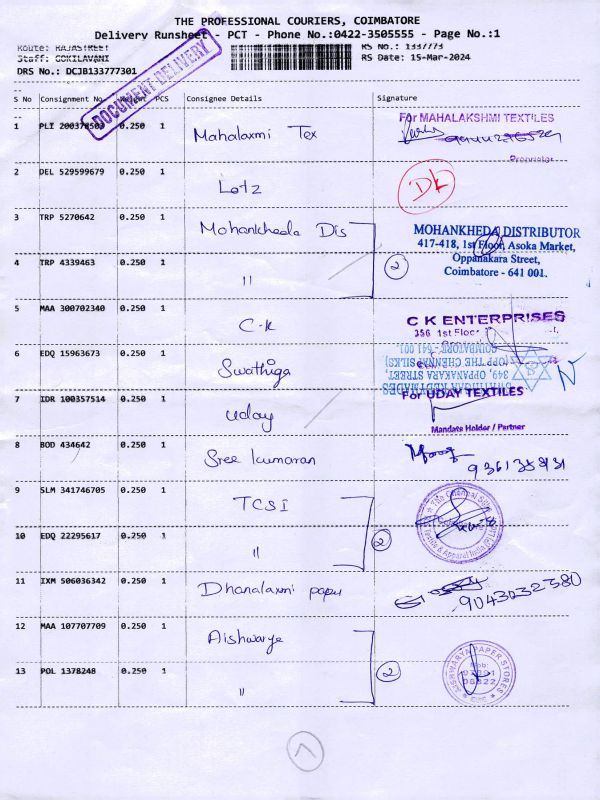 THE PROFESSIONAL COURIERS, COIMBATORE
Delivery Runsheet - PCT - Phone No.:0422-3505555 - Page No.:1
Route: RAJASTREET
Staff: GOKILAVANI
DRS No.: DCJB133777301
RS No.: 1337773
RS Date: 15-Mar-2024
DOCUMENT DELIVERY
S No Consignment No. Weight PCS Consignee Details Signature
1 PLI 200378503 0.250 1 Mahalaxmi Tex
For MAHALAKSHMI TEXTILES
Proprietor
2 DEL 529599679 0.250 1 Lotz
3 TRP 5270642 0.250 1 Mohankheda Dis
MOHANKHEDA DISTRIBUTOR
417-418, 1st Floor, Asoka Market,
Oppanakara Street,
Coimbatore - 641 001.
4 TRP 4339463 0.250 1 "
2
5 MAA 300702340 0.250 1 C-K
C K ENTERPRISES
356 1st Floor
6 EDQ 15963673 0.250 1 Swathiga
READYMADES
349, OPPANAKARA STREET,
(OPP THE CHENNAI SILKS)
COIMBATORE - 641 001.
7 IDR 100357514 0.250 1 Uday
For UDAY TEXTILES
Mandate Holder / Partner
8 BOD 434642 0.250 1 Sree kumaran
9 SLM 341746705 0.250 1 TCSI
10 EDQ 22295617 0.250 1 "
2
11 IXM 506036342 0.250 1 Dhanalaxmi paper
9043032380
12 MAA 107707709 0.250 1 Aishwarya
13 POL 1378248 0.250 1 "
2
AISHWARYA PAPER STORES